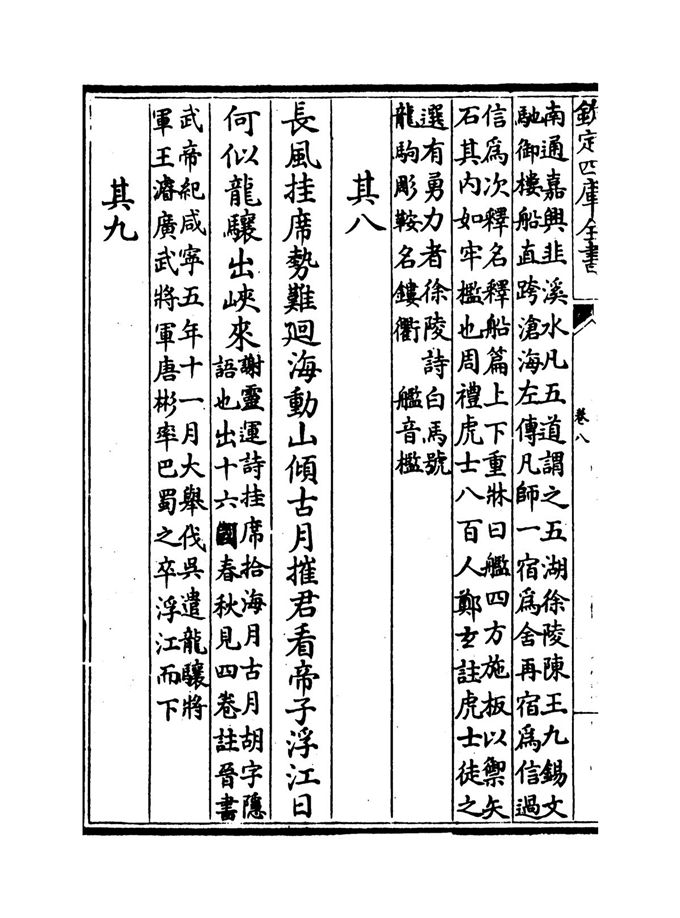 欽定四庫全書
卷八
南通嘉興韭溪水凡五道謂之五湖徐陵陳王九錫文
馳御樓船直跨滄海左傳凡師一宿爲舍再宿爲信過
信爲次釋名釋船篇上下重牀曰艦四方施板以禦矢
石其内如牢檻也周禮虎士八百人鄭𤣥註虎士徒之
選有勇力者徐陵詩白馬號
龍駒彫鞍名鏤衢　艦音檻
其八
長風挂席勢難廻海動山傾古月摧君看帝子浮江日
何似龍驤出峽來
謝靈運詩挂席拾海月古月胡字隱
語也出十六國春秋見四卷註晉書
武帝紀咸寧五年十一月大舉伐吳遣龍驤將
軍王濬廣武將軍唐彬率巴蜀之卒浮江而下
其九